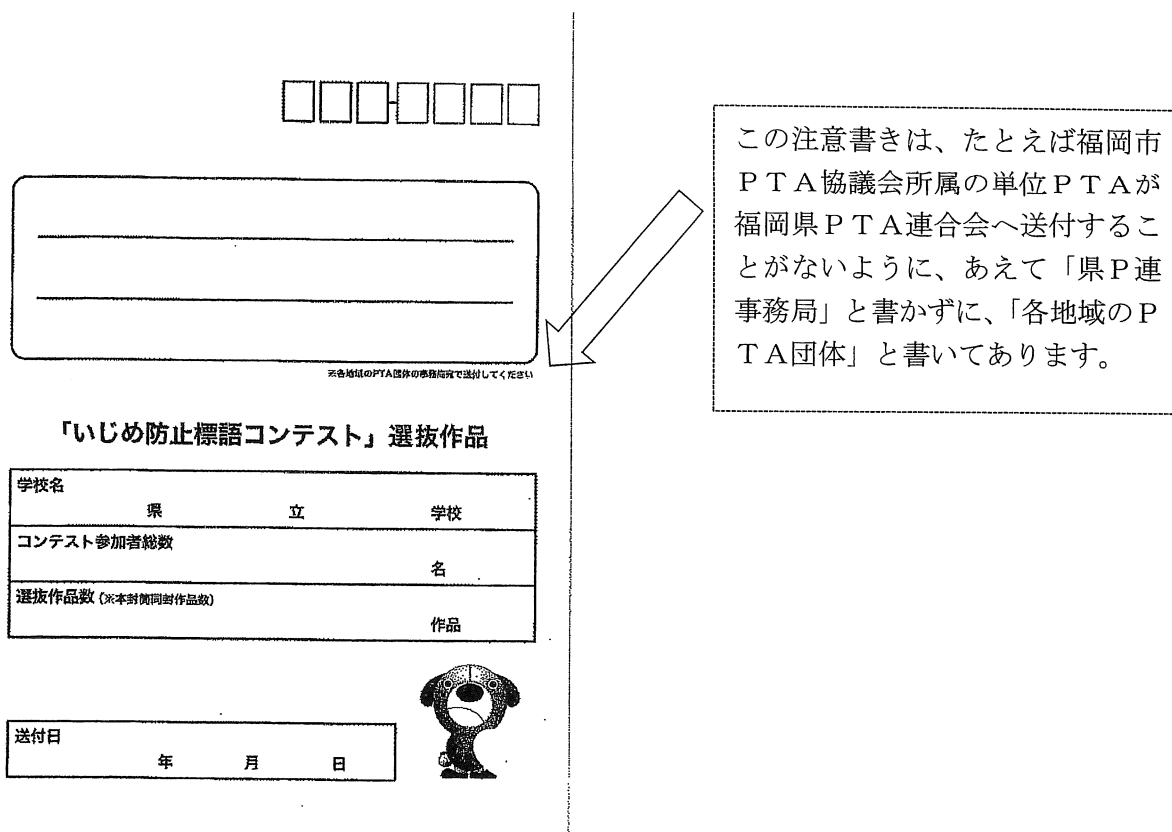 ※各地域のPTA団体の事務局宛で送付してください
「いじめ防止標語コンテスト」選抜作品
学校名
県 立 学校
コンテスト参加者総数
名
選抜作品数 (※本封筒同封作品数)
作品
送付日
年 月 日
この注意書きは、たとえば福岡市
PTA協議会所属の単位PTAが
福岡県PTA連合会へ送付するこ
とがないように、あえて「県P連
事務局」と書かずに、「各地域のP
TA団体」と書いてあります。